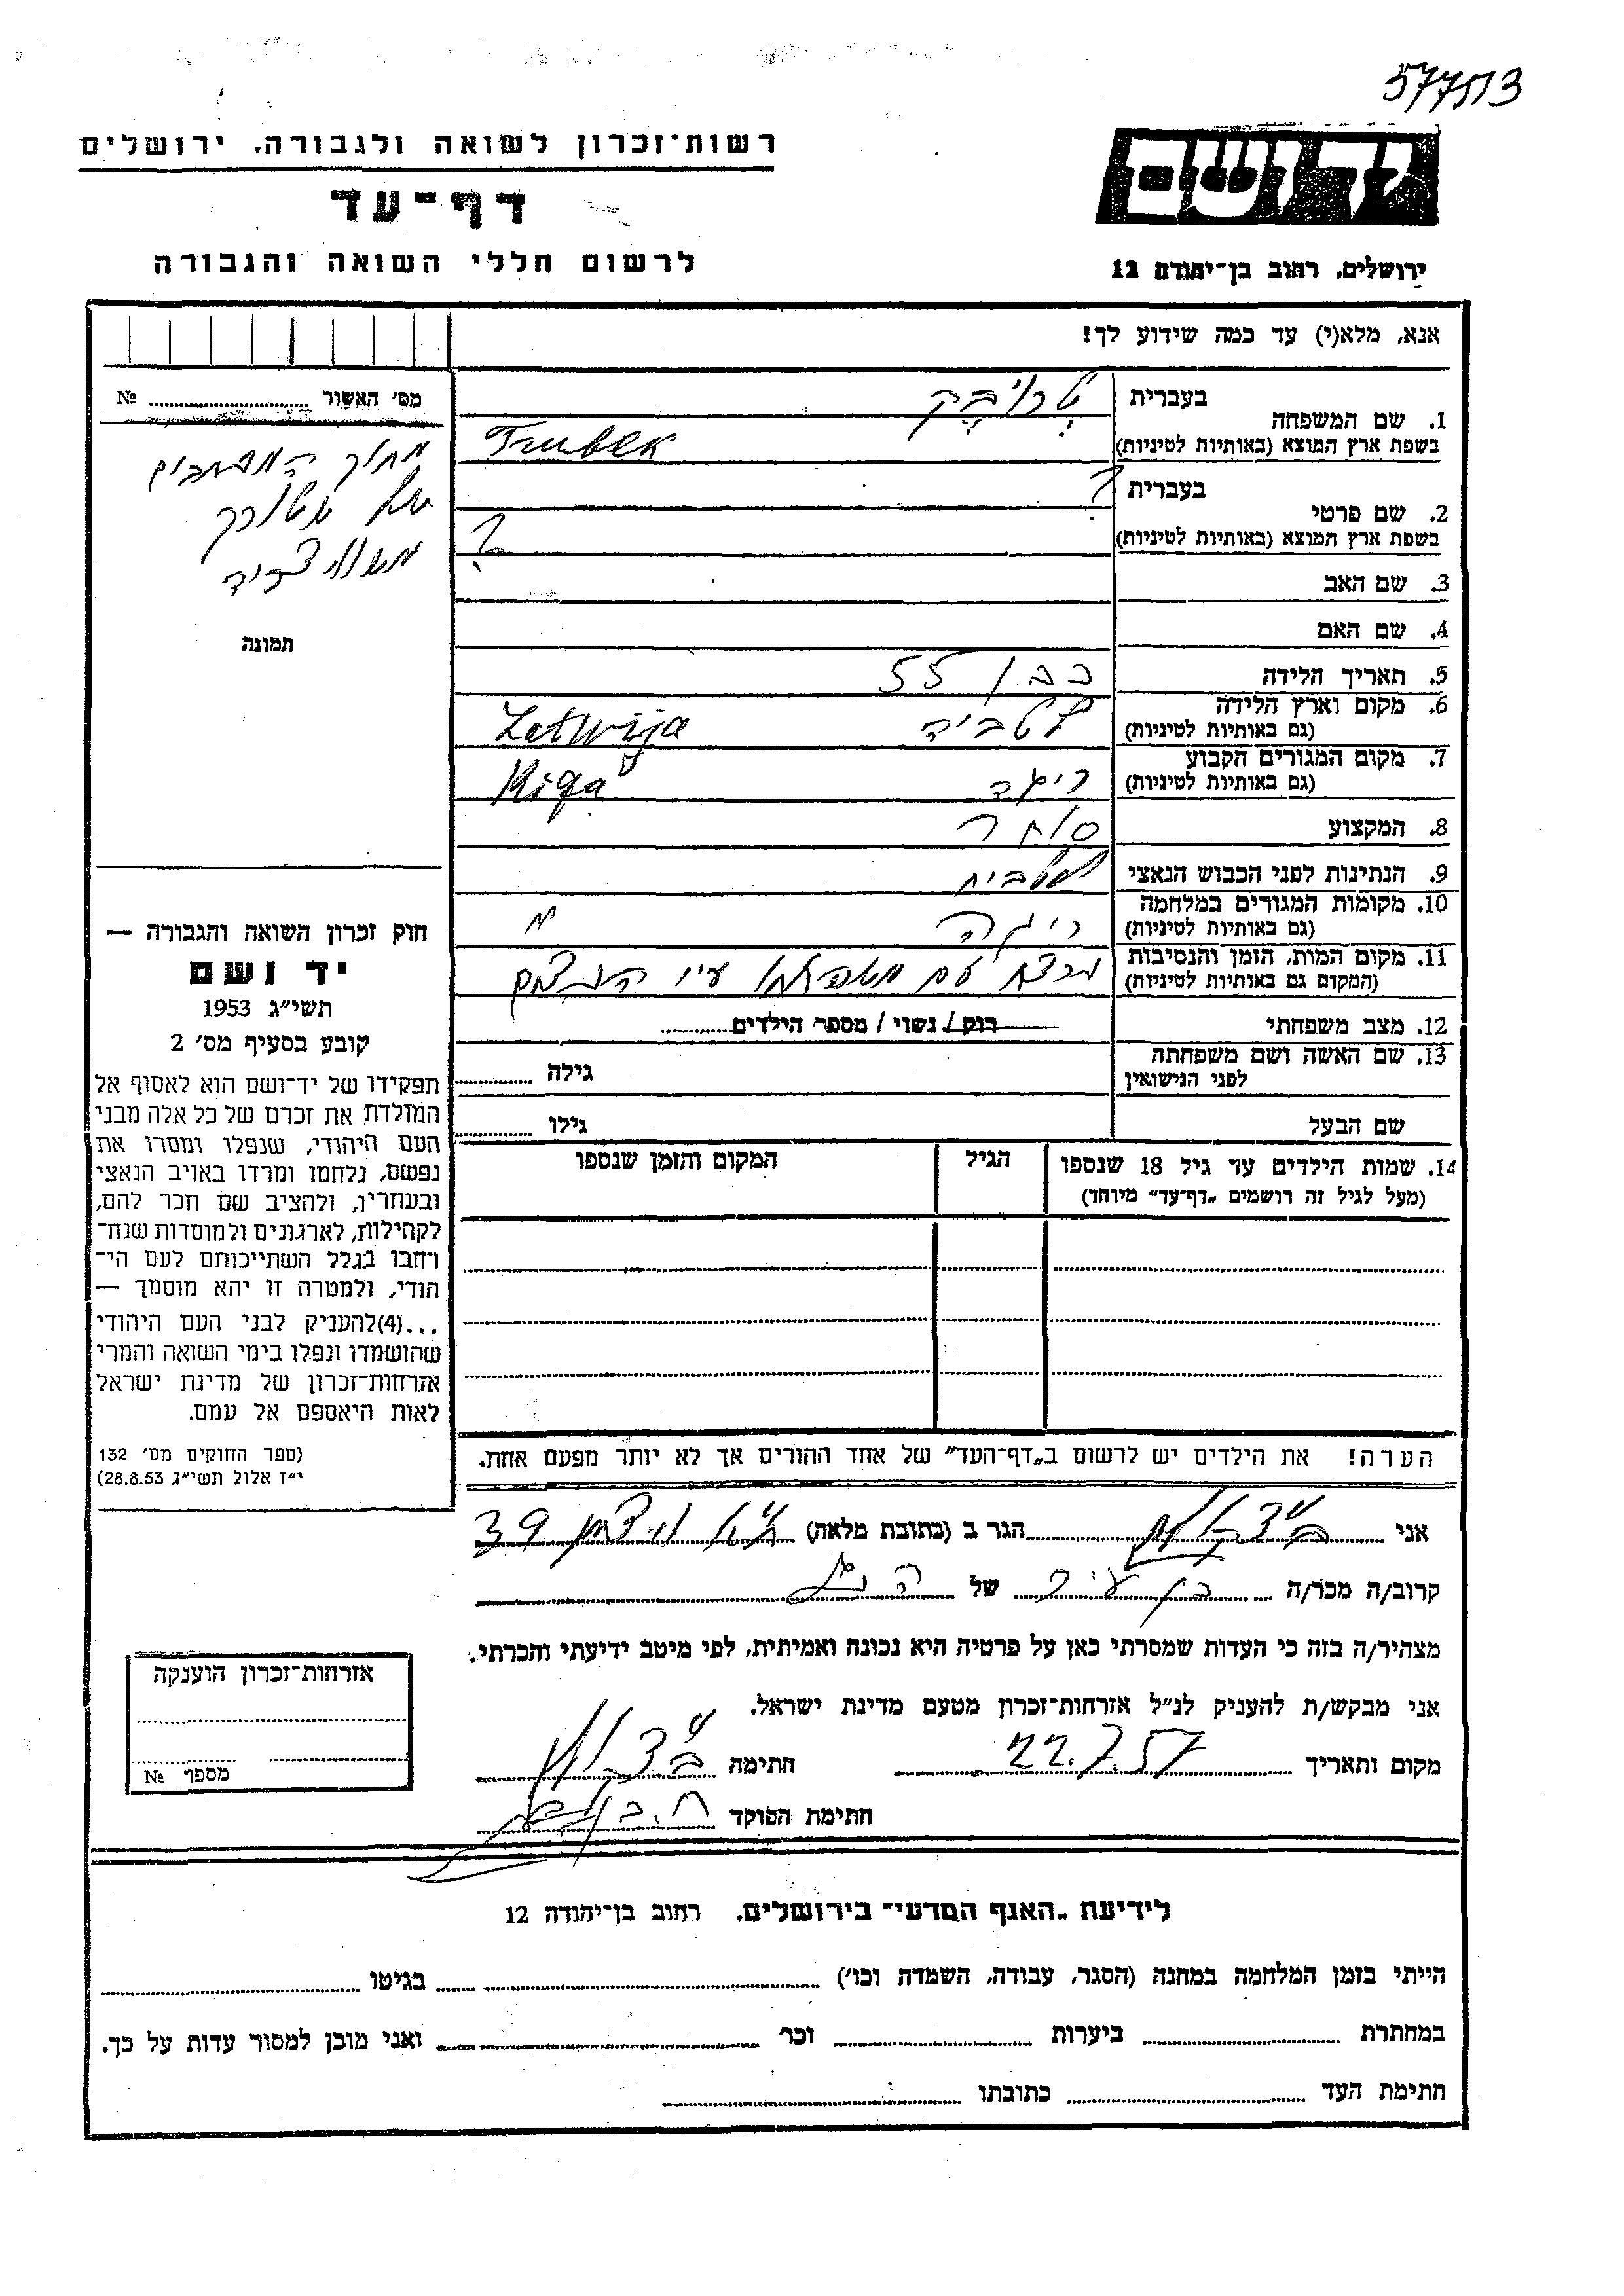 577513
רשות־זכרון לשואה ולגבורה, ירושלים
דף־עד
לרשום חללי השואה והגבורה
יד ושם
ירושלים, רחוב בן־יהודה 12
אנא, מלא(י) עד כמה שידוע לך!
מס׳ האשור ........ №
מתוך
של
תמונה
חוק זכרון השואה והגבורה —
יד ושם
תשי״ג 1953
קובע בסעיף מס׳ 2
תפקידו של יד־ושם הוא לאסוף אל
המולדת את זכרם של כל אלה מבני
העם היהודי, שנפלו ומסרו את
נפשם, נלחמו ומרדו באויב הנאצי
ובעוזריו, ולהציב שם וזכר להם,
לקהילות, לארגונים ולמוסדות שנח־
רחבו בגלל השתייכותם לעם הי־
הודי, ולמטרה זו יהא מוסמך —
...(4)להעניק לבני העם היהודי
שהושמדו ונפלו בימי השואה והמרי
אזרחות־זכרון של מדינת ישראל
לאות היאספם אל עמם.
(ספר החוקים מס׳ 132
י״ז אלול תשי״ג 28.8.53)
1. שם המשפחה
בעברית טרויבק
בשפת ארץ המוצא (באותיות לטיניות) Trubek
2. שם פרטי
בעברית ?
בשפת ארץ המוצא (באותיות לטיניות) ?
3. שם האב
4. שם האם
5. תאריך הלידה כבן 55
6. מקום וארץ הלידה (גם באותיות לטיניות) לטביה Letwija
7. מקום המגורים הקבוע (גם באותיות לטיניות) ריגה Riga
8. המקצוע סוחר
9. הנתינות לפני הכבוש הנאצי לטבית
10. מקומות המגורים במלחמה (גם באותיות לטיניות) ריגה
11. מקום המות, הזמן והנסיבות (המקום גם באותיות לטיניות) נרצח עם משפחתו ע״י הנאצים
12. מצב משפחתי רוק / נשוי / מספר הילדים........
13. שם האשה ושם משפחתה לפני הנישואין גילה ........
שם הבעל גילו ........
14. שמות הילדים עד גיל 18 שנספו הגיל המקום והזמן שנספו
(מעל לגיל זה רושמים „דף־עד״ מיוחד)
הערה! את הילדים יש לרשום ב„דף־העד״ של אחד ההורים אך לא יותר מפעם אחת.
אני ........ הגר ב (כתובת מלאה) ........ 39
קרוב/ה מכר/ה ........ של ........
מצהיר/ה בזה כי העדות שמסרתי כאן על פרטיה היא נכונה ואמיתית, לפי מיטב ידיעתי והכרתי.
אני מבקש/ת להעניק לנ״ל אזרחות־זכרון מטעם מדינת ישראל.
מקום ותאריך 22.7.57 חתימה
חתימת הפוקד
אזרחות־זכרון הוענקה
מספר №
לידיעת „האגף המדעי״ בירושלים, רחוב בן־יהודה 12
הייתי בזמן המלחמה במחנה (הסגר, עבודה, השמדה וכו׳) ........ בגיטו ........
במחתרת ........ ביערות ........ וכו׳ ........ ואני מוכן למסור עדות על כך.
חתימת העד ........ כתובתו ........